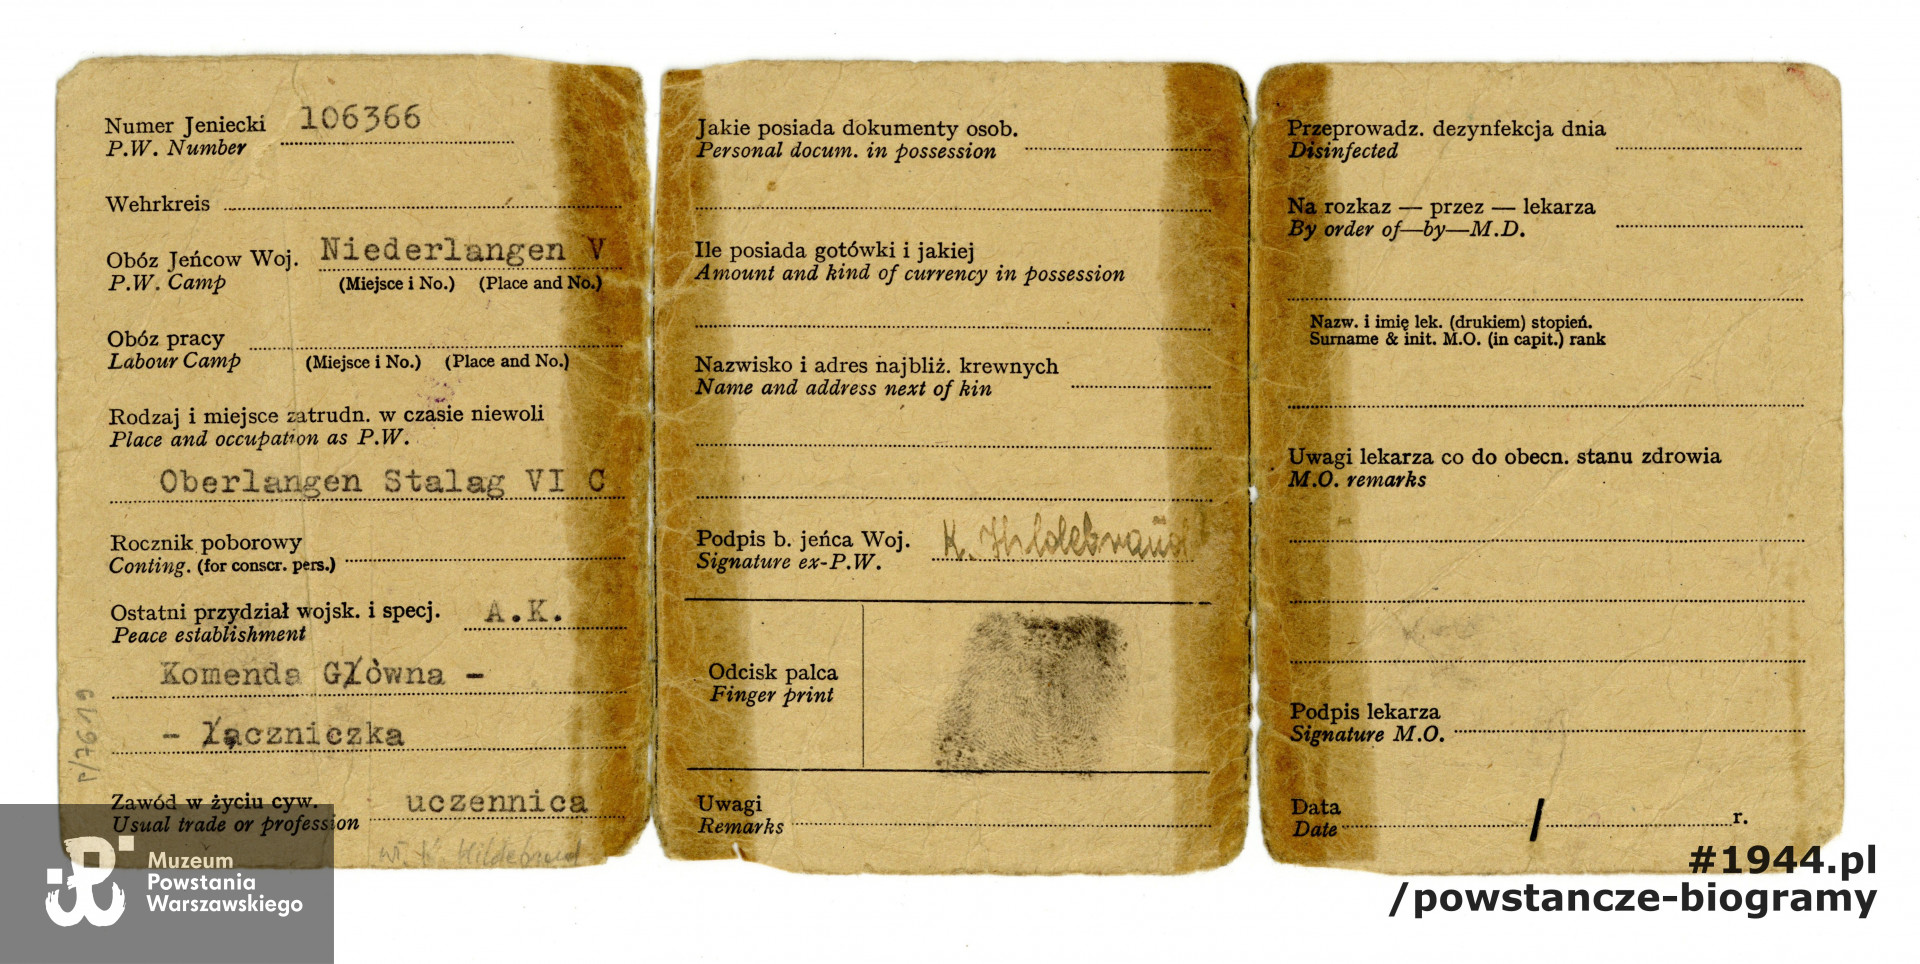 Numer Jeniecki 106366
P.W. Number
Wehrkreis
Obóz Jeńcow Woj. Niederlangen V
P.W. Camp (Miejsce i No.) (Place and No.)
Obóz pracy
Labour Camp (Miejsce i No.) (Place and No.)
Rodzaj i miejsce zatrudn. w czasie niewoli
Place and occupation as P.W.
Oberlangen Stalag VI C
Rocznik poborowy
Conting. (for conscr. pers.)
Ostatni przydział wojsk. i specj. A.K.
Peace establishment
Komenda Główna -
- łączniczka
Zawód w życiu cyw. uczennica
Usual trade or profession
K. Hildebrand
P/7619
Jakie posiada dokumenty osob.
Personal docum. in possession
Ile posiada gotówki i jakiej
Amount and kind of currency in possession
Nazwisko i adres najbliż. krewnych
Name and address next of kin
Podpis b. jeńca Woj. K. Hildebrandt
Signature ex-P.W.
Odcisk palca
Finger print
Uwagi
Remarks
Przeprowadz. dezynfekcja dnia
Disinfected
Na rozkaz — przez — lekarza
By order of—by—M.D.
Nazw. i imię lek. (drukiem) stopień.
Surname & init. M.O. (in capit.) rank
Uwagi lekarza co do obecn. stanu zdrowia
M.O. remarks
Podpis lekarza
Signature M.O.
Data / r.
Date
Muzeum
Powstania
Warszawskiego
#1944.pl
/powstancze-biogramy